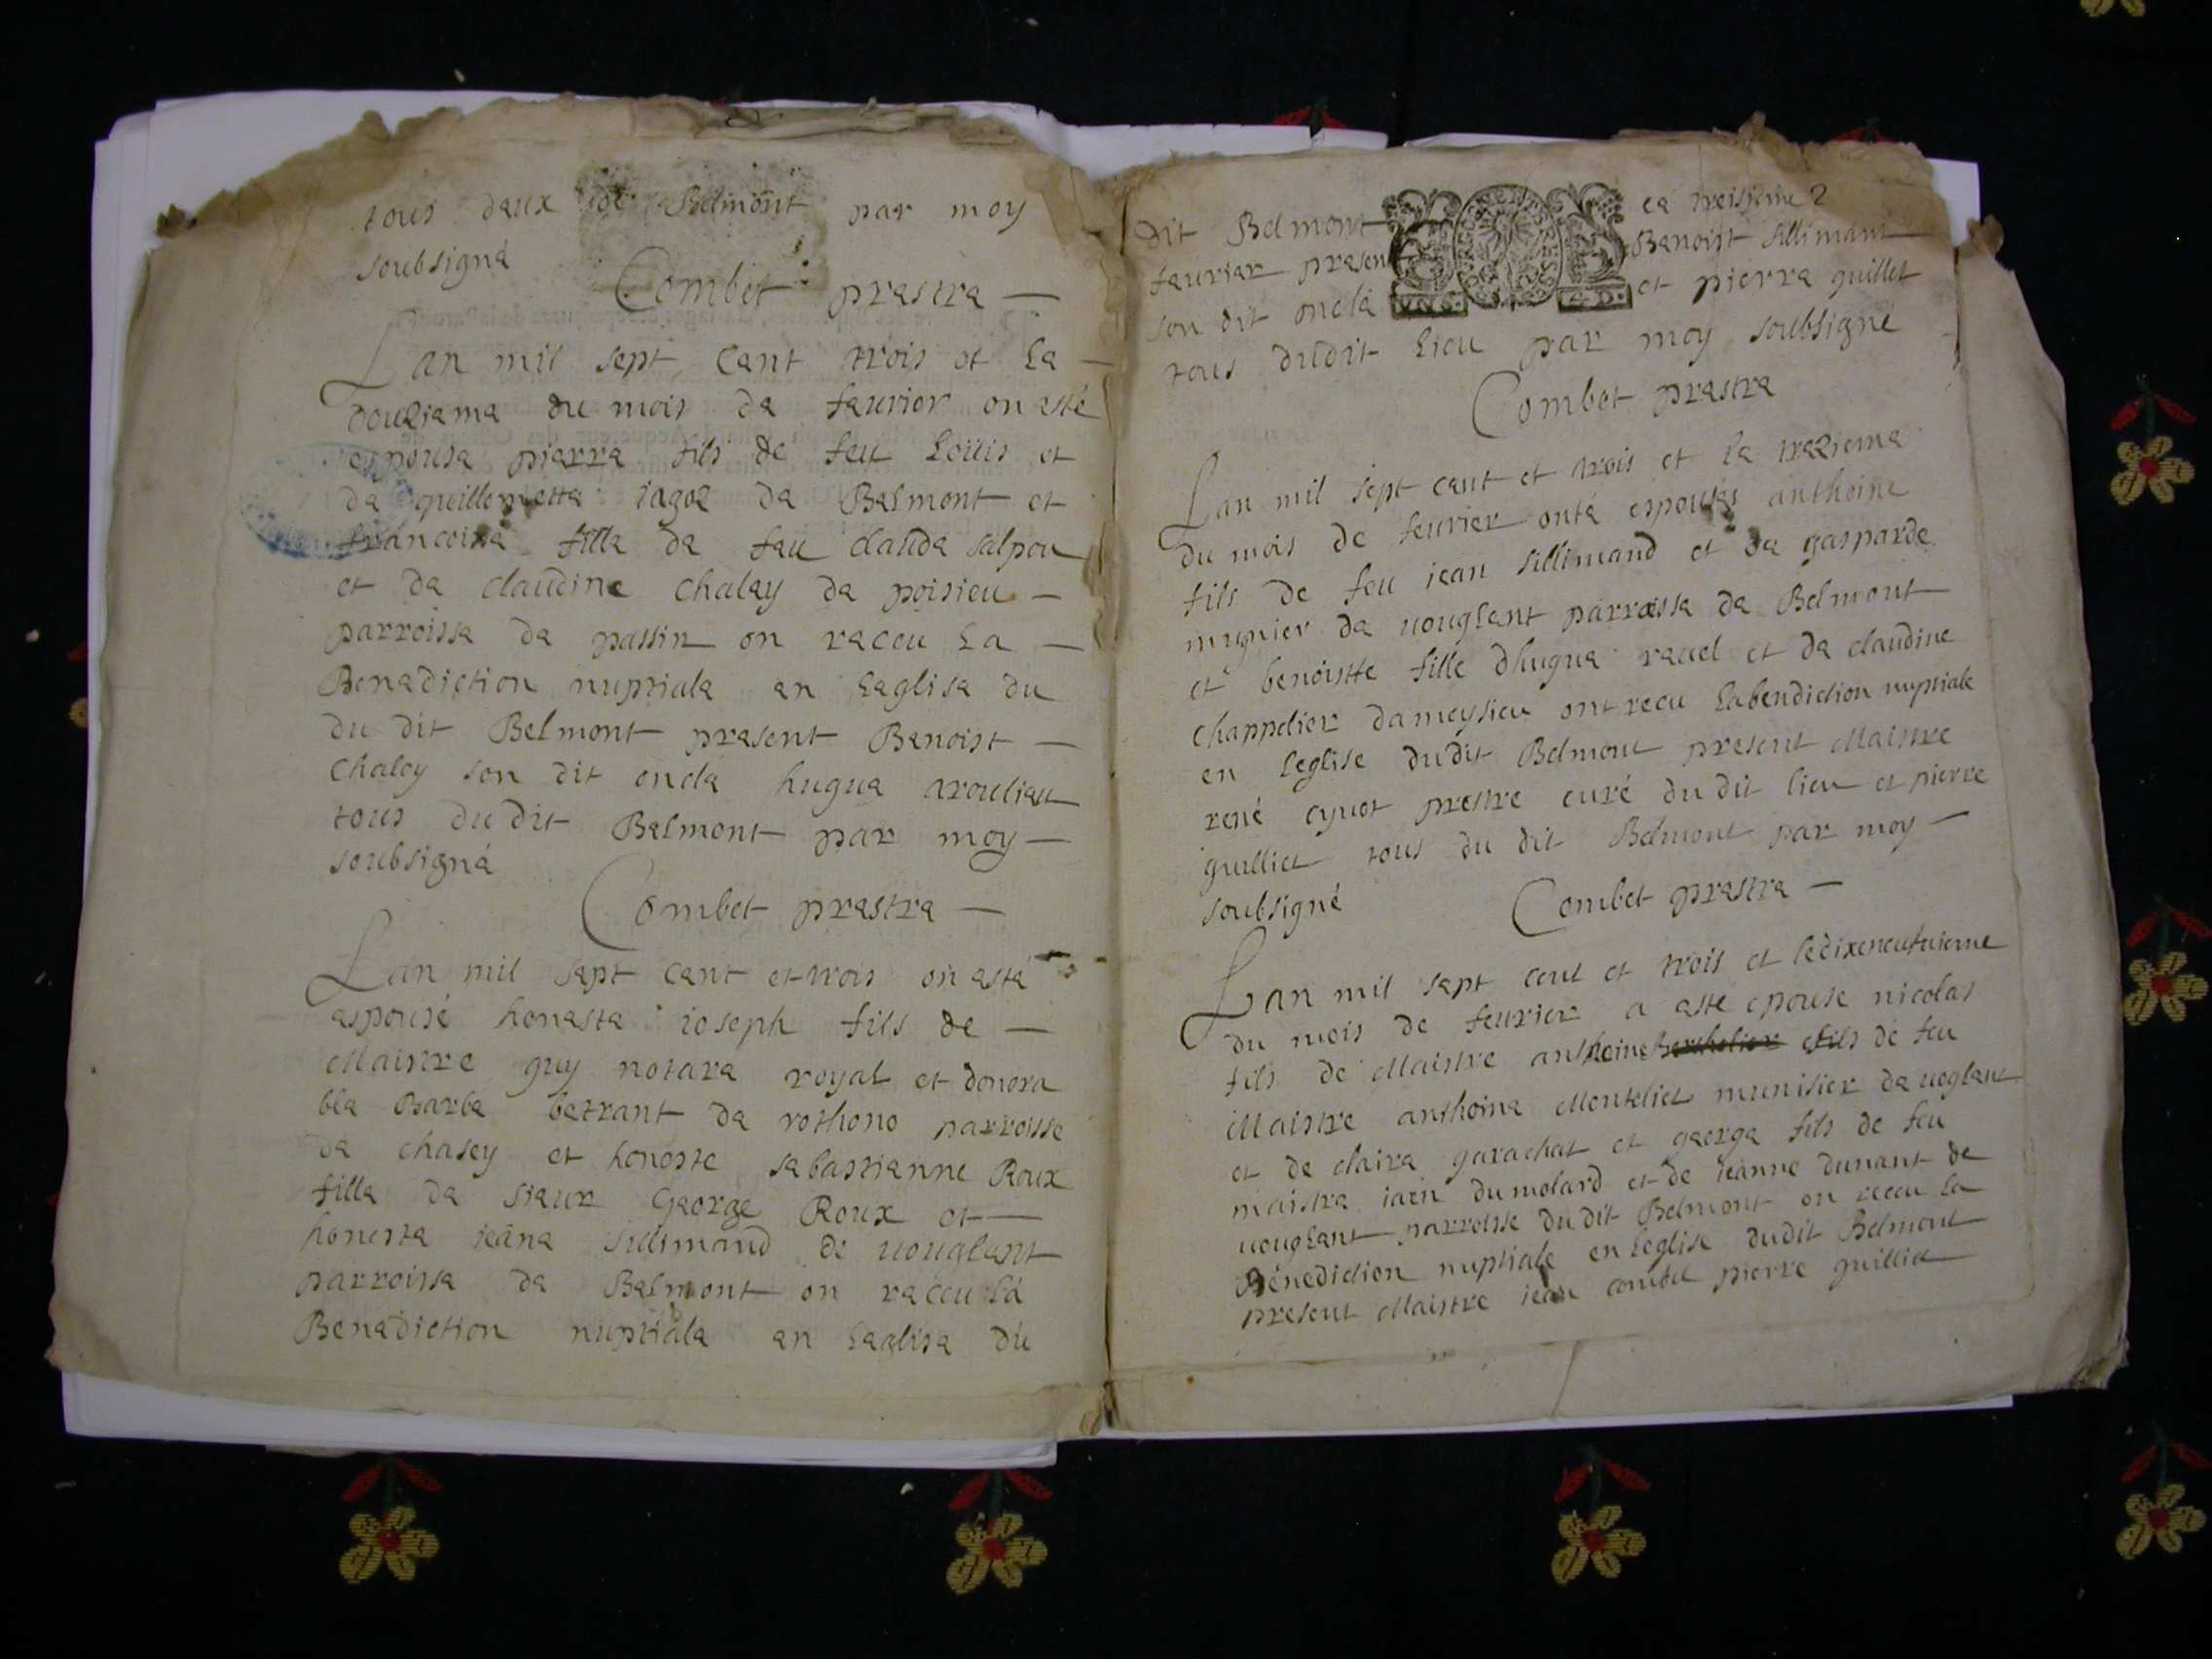 tous deux de Belmont par moy
soubsigné
Combet prastra —
Lan mil sept cant trois et la —
douziama du mois da faurier on asté
espousa piarra fils de feu Loüis et
da guillemetta iagoz da Balmont et
francoisa filla da fau clauda salpou
et da claudine chalay da poisieu —
parroissa da passin on raceu la —
Benadiction nuptiala an Laglisa du
du dit Belmont prasent Banoist —
chaley son dit oncla hugua
tous du dit Balmont par moy —
soubsigné
Combet prastra —
Lan mil sapt cant et trois on asté
aspousé honasta ioseph fils de —
Maistre guy notara royal et donora
bla Barba batrant da rothono parroisse
da chasey et honeste sabastianne Roux
filla da siaur George Roux et —
honesta ieana sillimand de uouglant
parroissa da Balmont on raceu la
Benadiction nuptiala an Laglisa du
dit Belmont la treisieme
faurier prasent Banoist sillimant
son dit oncla et pierra guillet
tous dudit lieu par moy soubsigné
Combet prastra
Lan mil sept cant et trois et la traziema
du mois de feurier onté espousés anthoine
fils de feu iean sillimand et da gasparde
mugnier da uouglant parroissa da Belmont
et benoistte fille dhugua rauel et da claudine
chappelier dameysieu ont receu la bendiction nuptiale
en leglise dudit Belmont present Maistre
rené cynot prestre curé du dit lieu et pierre
guilliet tous du dit Belmont par moy —
soubsigné Combet prastra —
Lan mil sapt cent et trois et ledixeneufuieme
du mois de feurier a asté epouse nicolas
fils de Maistre anthoine Berthelier fils de feu
Maistre anthoina Monteliet munisier da uoglant
et de claira garachat et gaorga fils de feu
maistra iaen dumolard et de ieanne dunant de
uouglant parroisse dudit Belmont on receu la
Bénediction nuptiale en Leglise dudit Belmont
present Maistre iean combet pierre guilliet